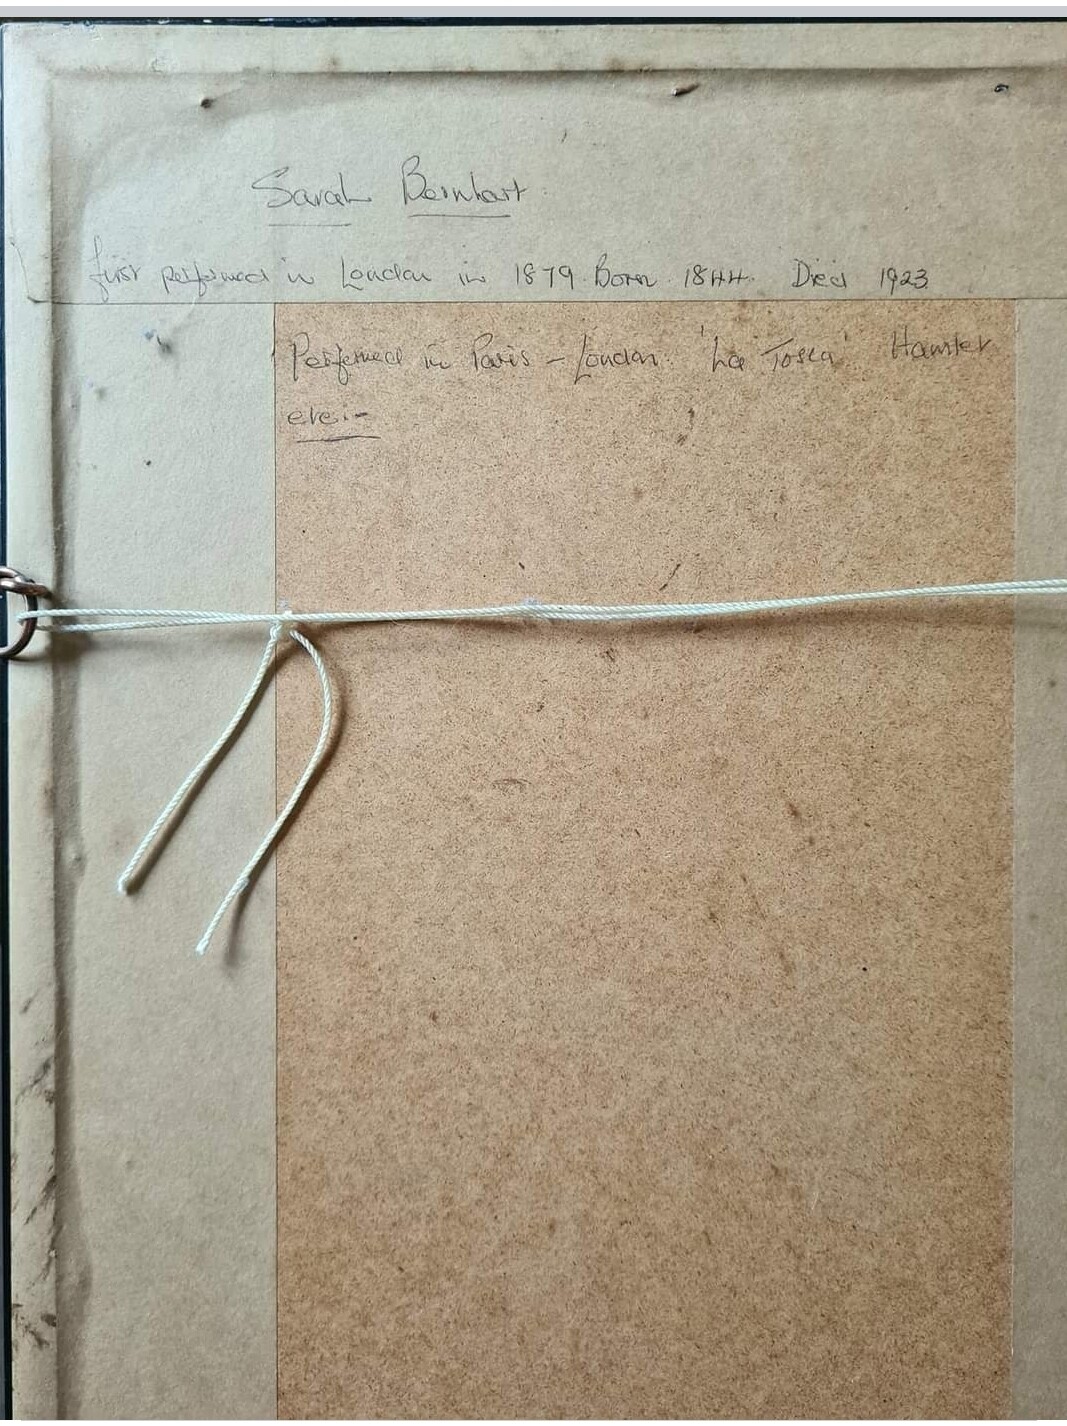 Sarah Bernhart
first performed in London in 1879. Born 1844. Died 1923
Performed in Paris - London. 'La Tosca' Hamlet
etc:-